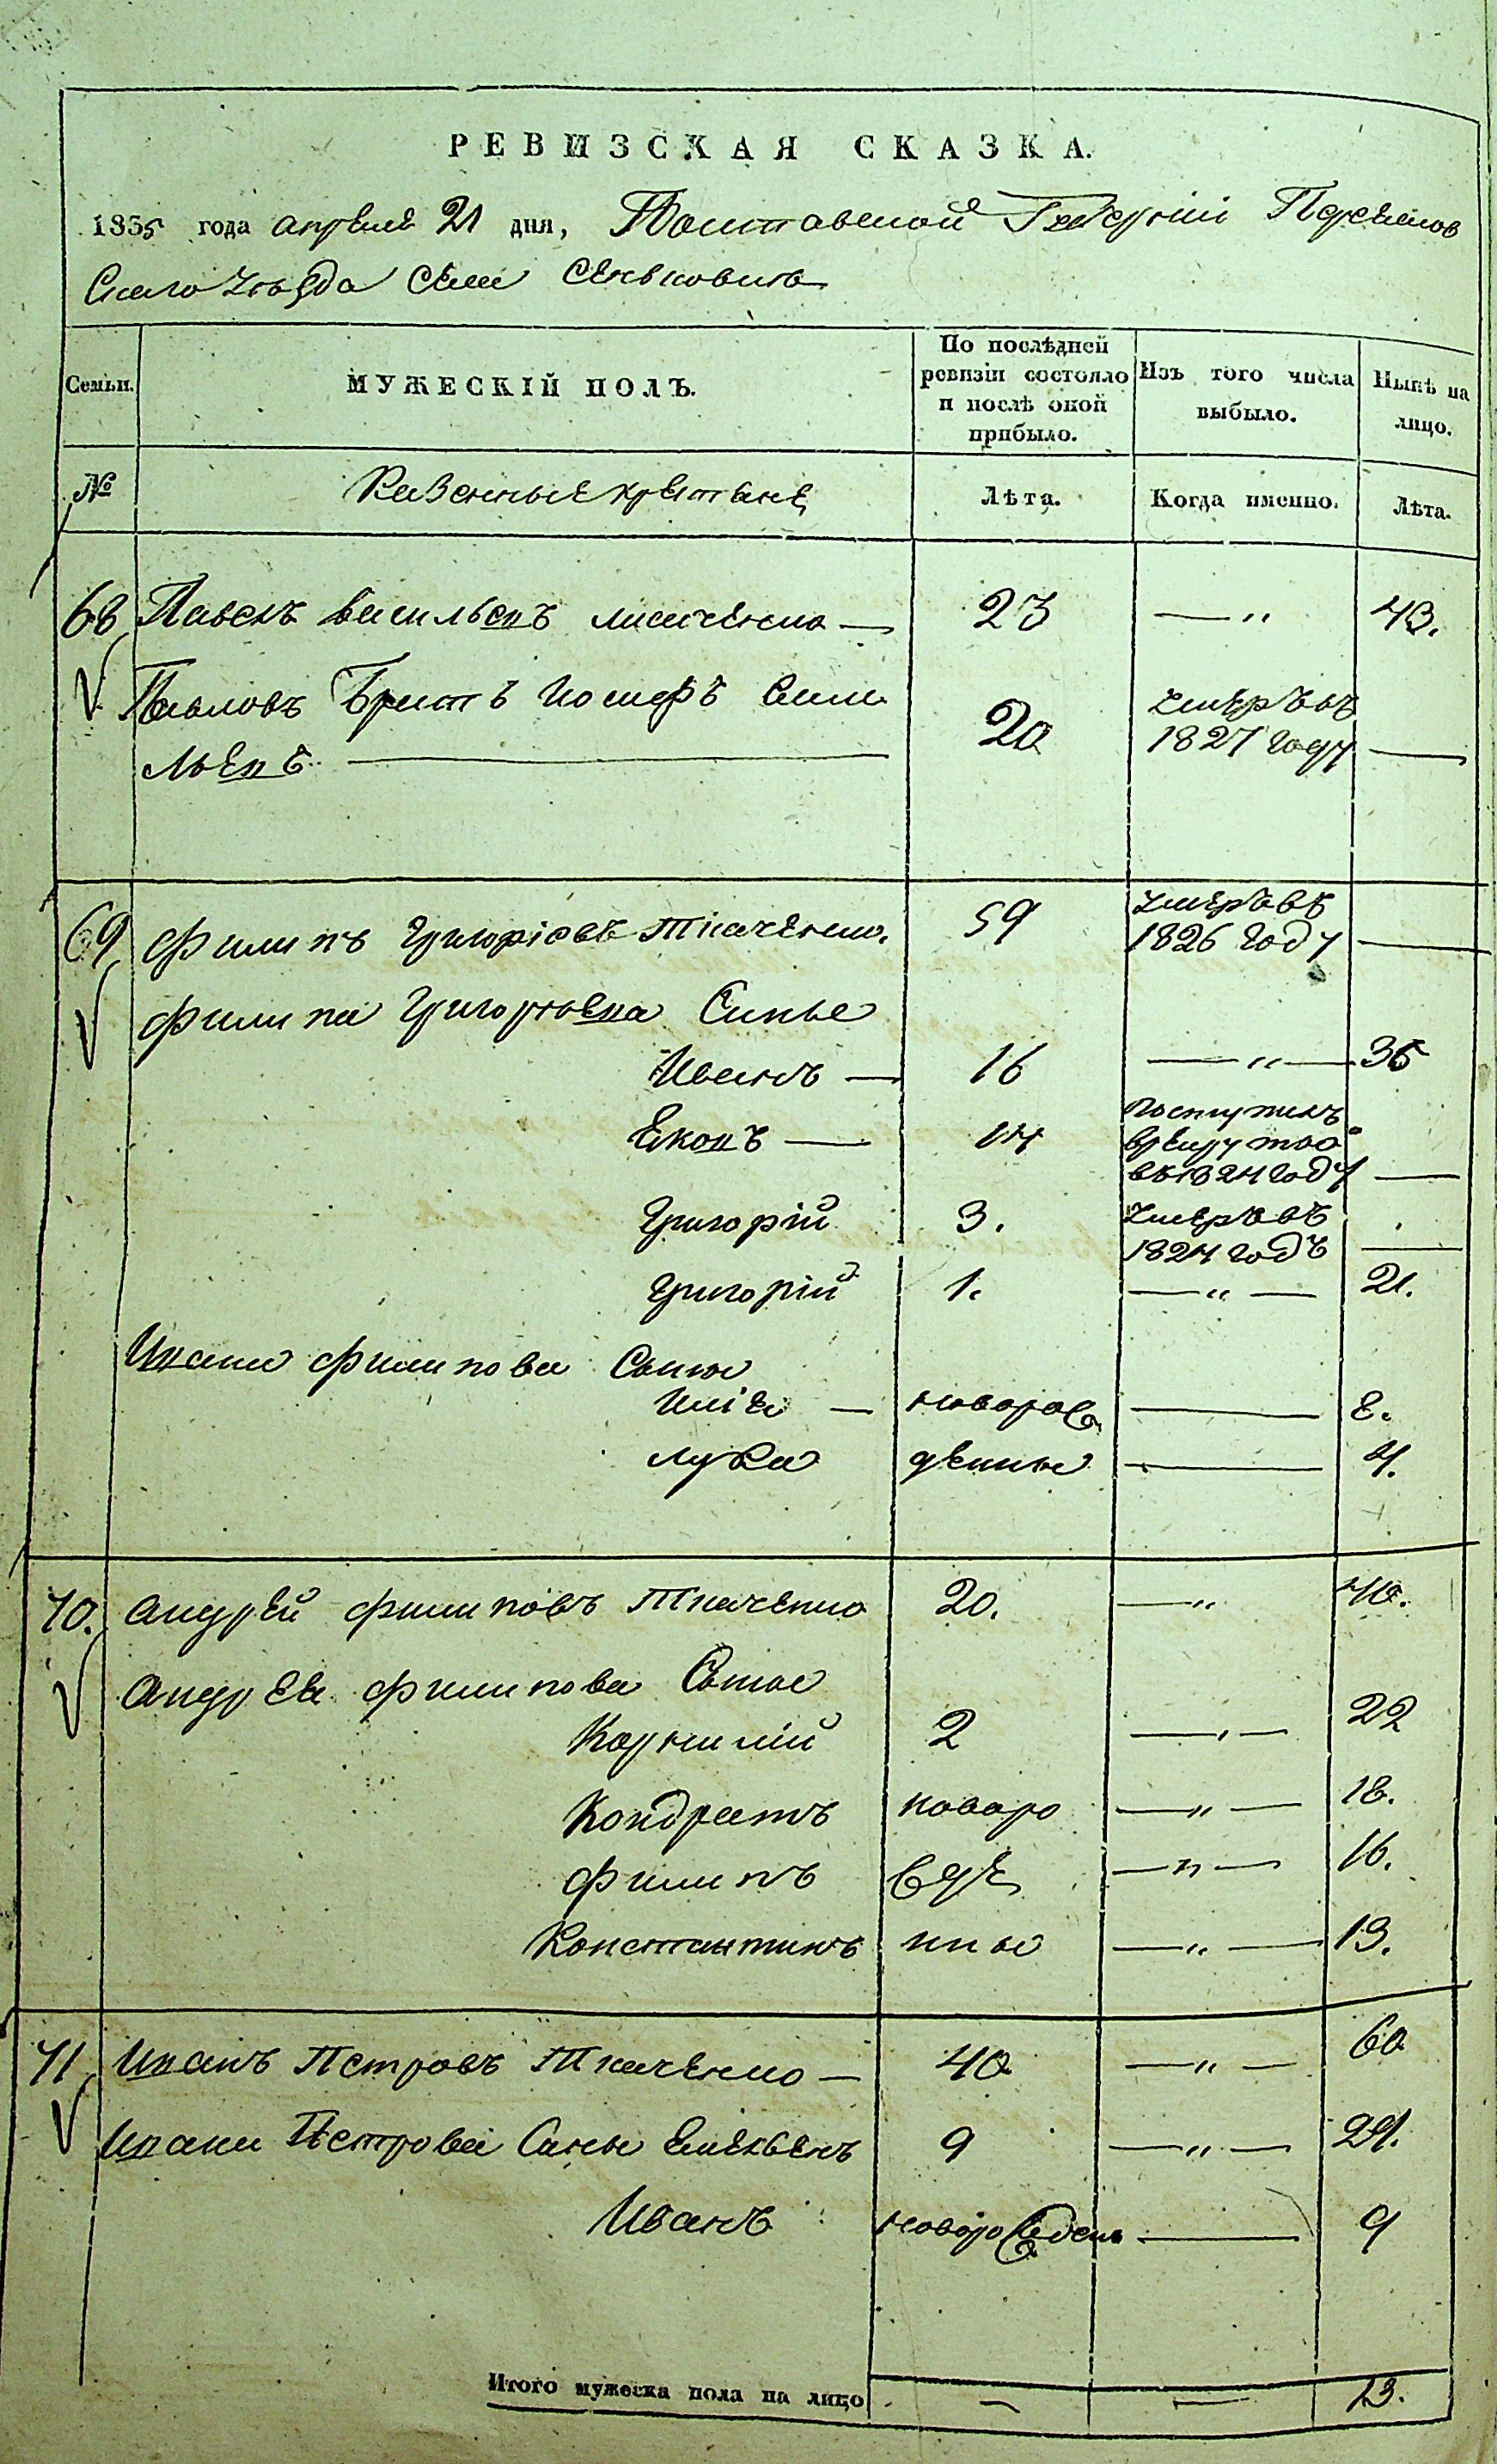 РЕВИЗСКАЯ СКАЗКА.
1835 года апреля 21 дня, Полтавской Губернии Переяслов
скаго уезда села Сеньковки
Семьи.
МУЖЕСКІЙ ПОЛЪ.
По послѣдней ревизіи состояло и послѣ оной прибыло.
Изъ того числа выбыло.
Нынѣ на лицо.
№
Казенные крестьяне
Лѣта.
Когда именно.
Лѣта.
68 Павелъ Васильевъ 23 — " 43.
Павловъ братъ Иосифъ Емел
льевъ 20 умеръ въ 1827 году —
69 Филипъ Григоріевъ Ткаченко. 59 умеръ въ 1826 году —
Филипа Григорьева Сынье
Иванъ — 16 — " — 36
Яковъ — 14 въ 1824 году —
Григорій 3. умеръ въ 1824 годъ —
Григорій 1. — " — 21.
Ивана Филипова Сынье
Илія — новорож — 8.
Лука денные — 4.
70. Андрей Филиповъ Ткаченко 20. — " 40.
Андрея Филипова Сынье
Корнилій 2 — " — 22
Кондратъ новоро — " — 18.
Филипъ жде — " — 16.
Константинъ нные — " — 13.
71 Иванъ Петровъ Ткаченко — 40 — " — 60
Ивана Петрова Сыны Емельенъ 9 — " — 29.
Иванъ новорожден — 9
Итого мужеска пола на лицо — — 13.